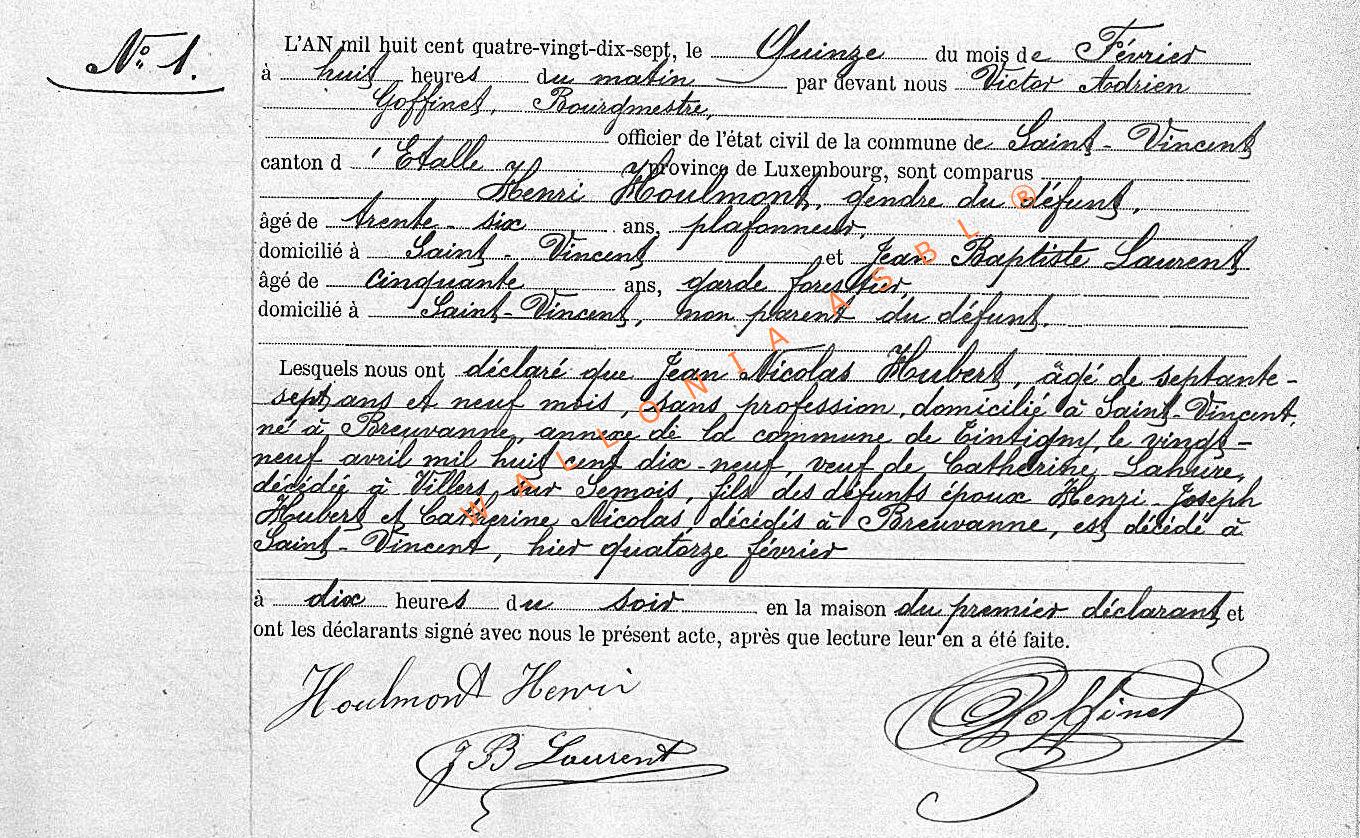 N° 1.
L'AN mil huit cent quatre-vingt-dix-sept, le Quinze du mois de Février
à huit heures du matin par devant nous Victor Adrien
Goffinet, Bourgmestre,
officier de l'état civil de la commune de Saint-Vincent
canton d'Etalle province de Luxembourg, sont comparus
Henri Houlmont, gendre du défunt,
âgé de trente-six ans, plafonneur,
domicilié à Saint-Vincent et Jean Baptiste Laurent
âgé de cinquante ans, garde forestier,
domicilié à Saint-Vincent, non parent du défunt.
Lesquels nous ont déclaré que Jean Nicolas Hubert, âgé de septante-
sept ans et neuf mois, sans profession, domicilié à Saint-Vincent,
né à Breuvanne, annexe de la commune de Tintigny, le vingt-
neuf avril mil huit cent dix-neuf, veuf de Catherine Lahure,
décédée à Villers sur Semois, fils des défunts époux Henri-Joseph
Hubert et Catherine Nicolas décédés à Breuvanne, est décédé à
Saint-Vincent, hier quatorze février
à dix heures du soir en la maison du premier déclarant et
ont les déclarants signé avec nous le présent acte, après que lecture leur en a été faite.
Houlmont Henri
J B Laurent
Goffinet
WALLONIA ASBL ®